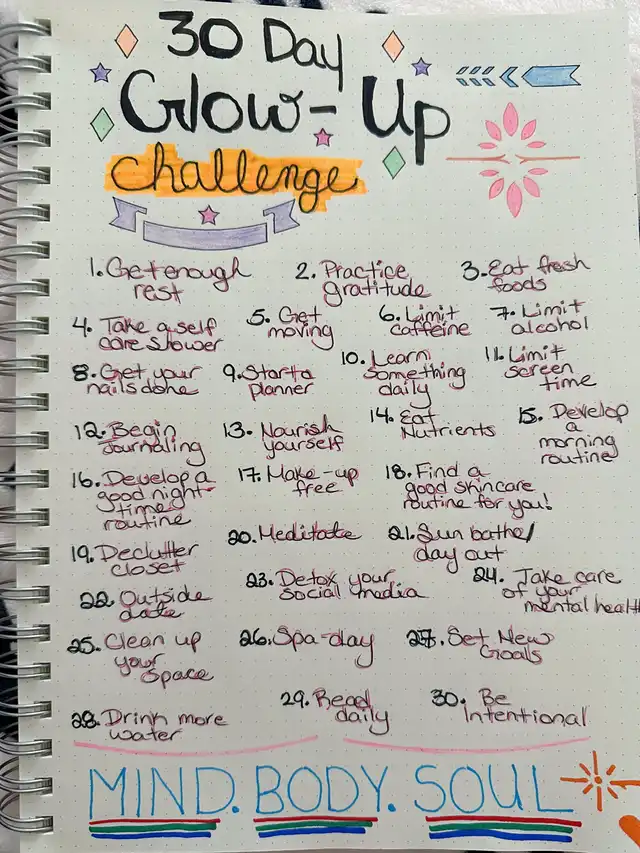 30 Day
Glow-Up
Challenge
1. Get enough
rest
2. Practice
gratitude
3. Eat fresh
foods
4. Take a self
care shower
5. Get
moving
6. Limit
caffeine
7. Limit
alcohol
8. Get your
nails done
9. Start a
planner
10. Learn
something
daily
11. Limit
screen
time
12. Begin
Journaling
13. Nourish
yourself
14. Eat
Nutrients
15. Develop
a
morning
routine
16. Develop a
good night-
time
routine
17. Make-up
free
18. Find a
good skincare
routine for you!
19. Declutter
closet
20. Meditate
21. Sun bathe/
day out
22. Outside
date
23. Detox your
social media
24. Take care
of your
mental health
25. Clean up
your
space
26. Spa-day
27. Set New
Goals
28. Drink more
water
29. Read
daily
30. Be
Intentional
MIND. BODY. SOUL